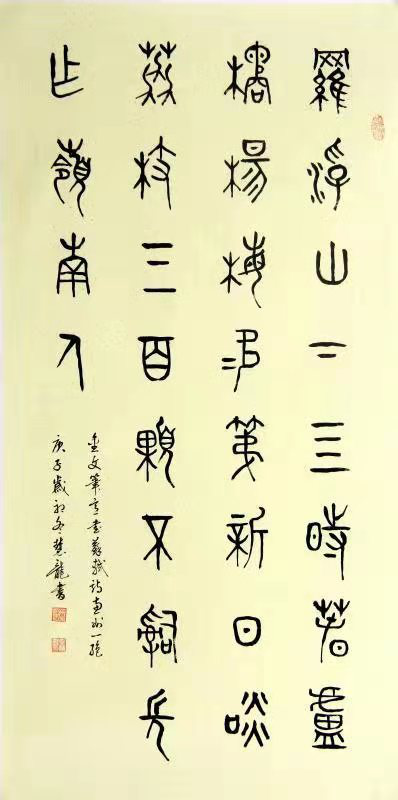 羅浮山下四時春盧
橘楊梅次第新日啖
荔枝三百顆不辭長
作嶺南人
金文筆意書蘇軾詩惠州一絕
庚子歲初冬慧龍書